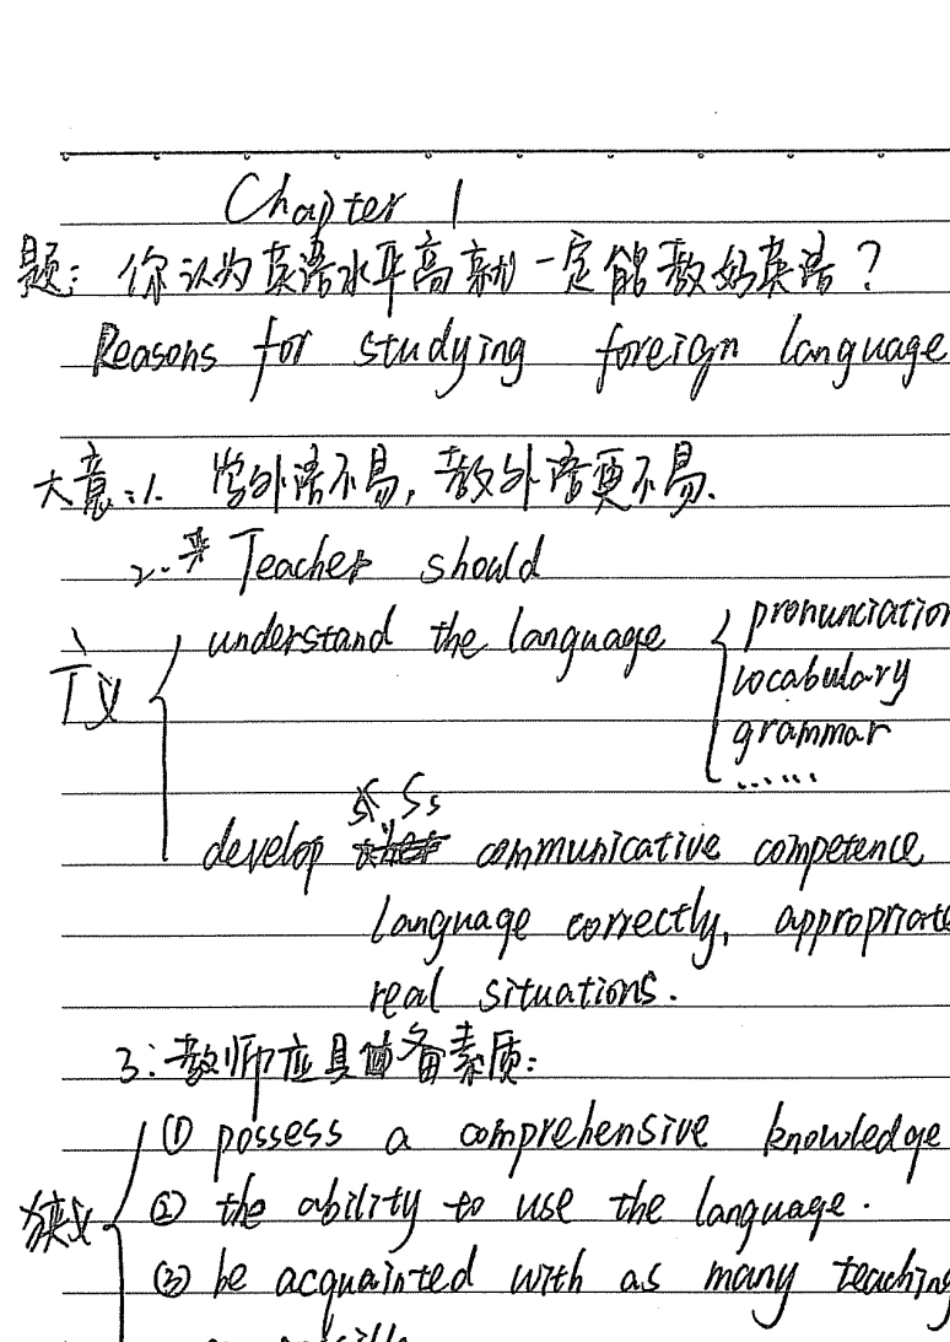 Chapter 1
题：你认为英语水平高就一定能教好英语？
Reasons for studying foreign language
大意：1. 学外语不易，教外语更不易、
2. Teacher should
广义
understand the language
pronunciation
vocabulary
grammar
......
Ss
develop communicative competence
language correctly, appropriate
real situations.
3：教师应具备素质：
狭义
① possess a comprehensive knowledge
② the ability to use the language.
③ be acquainted with as many teaching